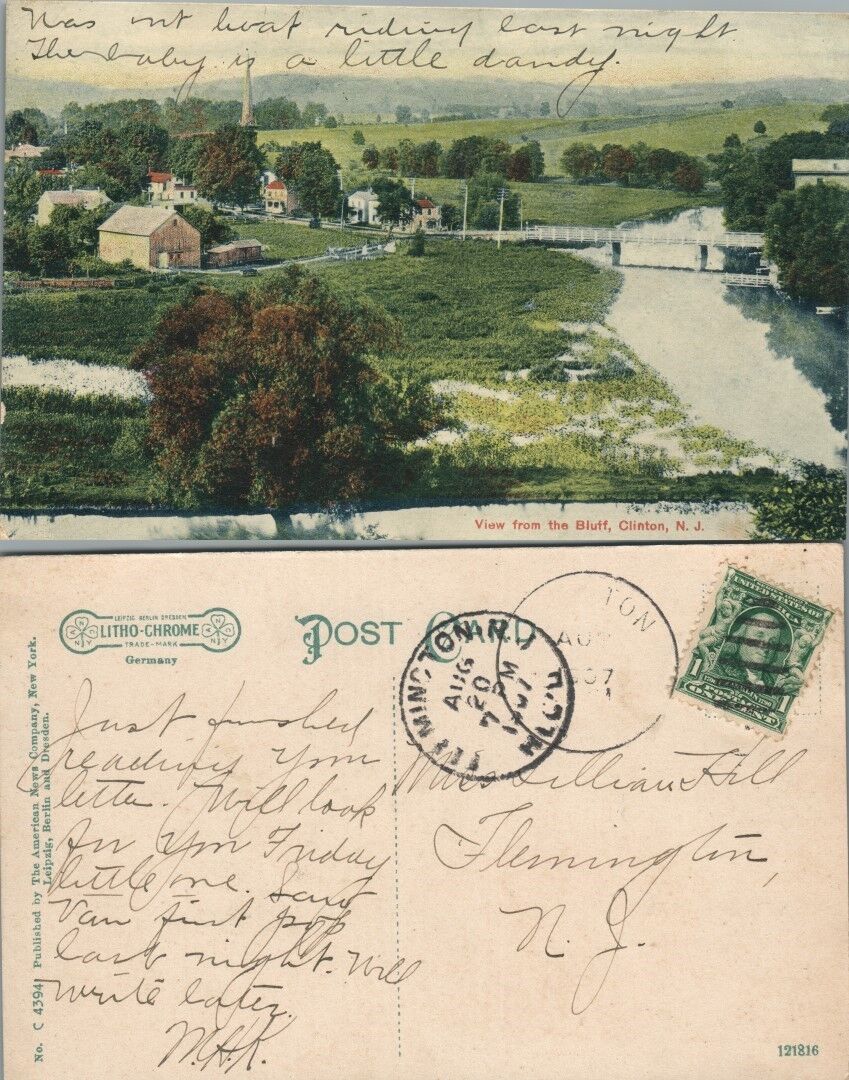 Was out boat riding last night.
The baby is a little dandy.
View from the Bluff, Clinton, N. J.
LEIPZIG BERLIN DRESDEN
LITHO-CHROME
TRADE-MARK
Germany
POST CARD
No. C 4394 Published by The American News Company, New York.
Leipzig, Berlin and Dresden.
Just finished
reading your
letter. Will look
for you Friday
little one. Saw
Van first pop
last night. Will
write later.
M.H.K.
FLEMINGTON, N.J.
AUG
20
7 PM
1907
REC'D
TON
AUG
1907
UNITED STATES OF AMERICA
1 1
POSTAGE
ONE CENT
Miss Lillian Hill
Flemington,
N. J.
121816